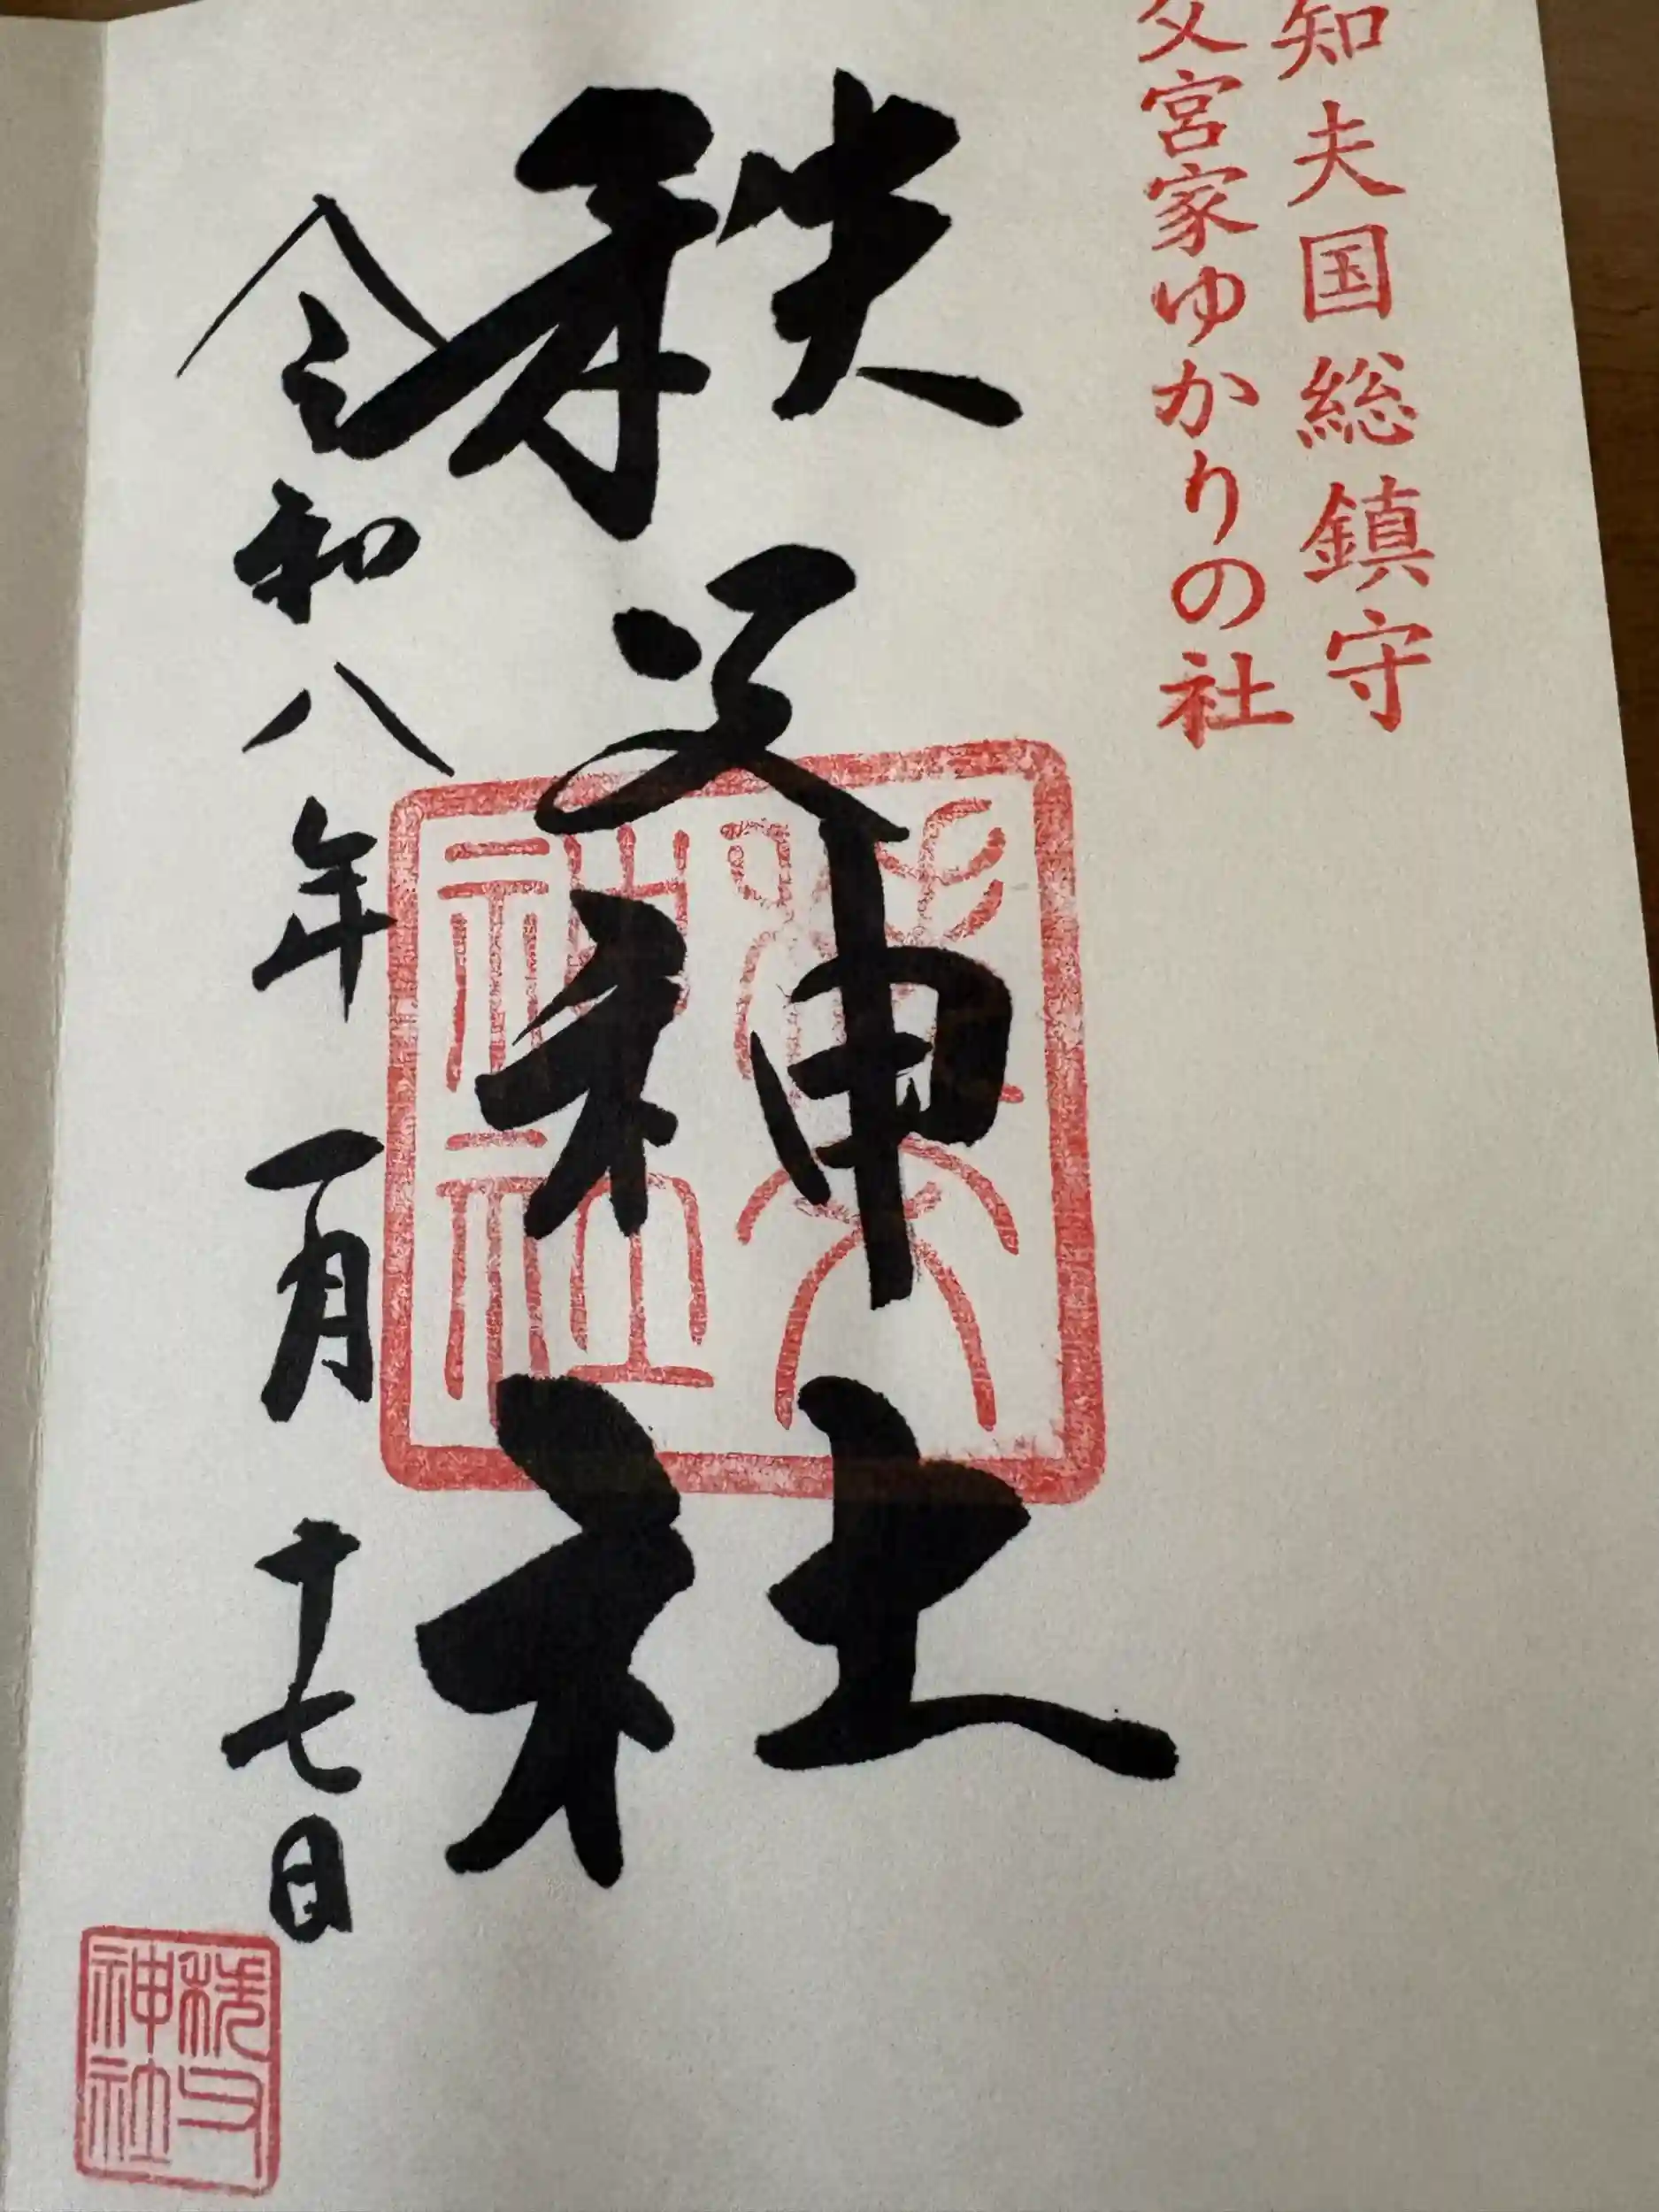 知夫国総鎮守
父宮家ゆかりの社
秩父神社
令和八年一月十七日
秩父
神社